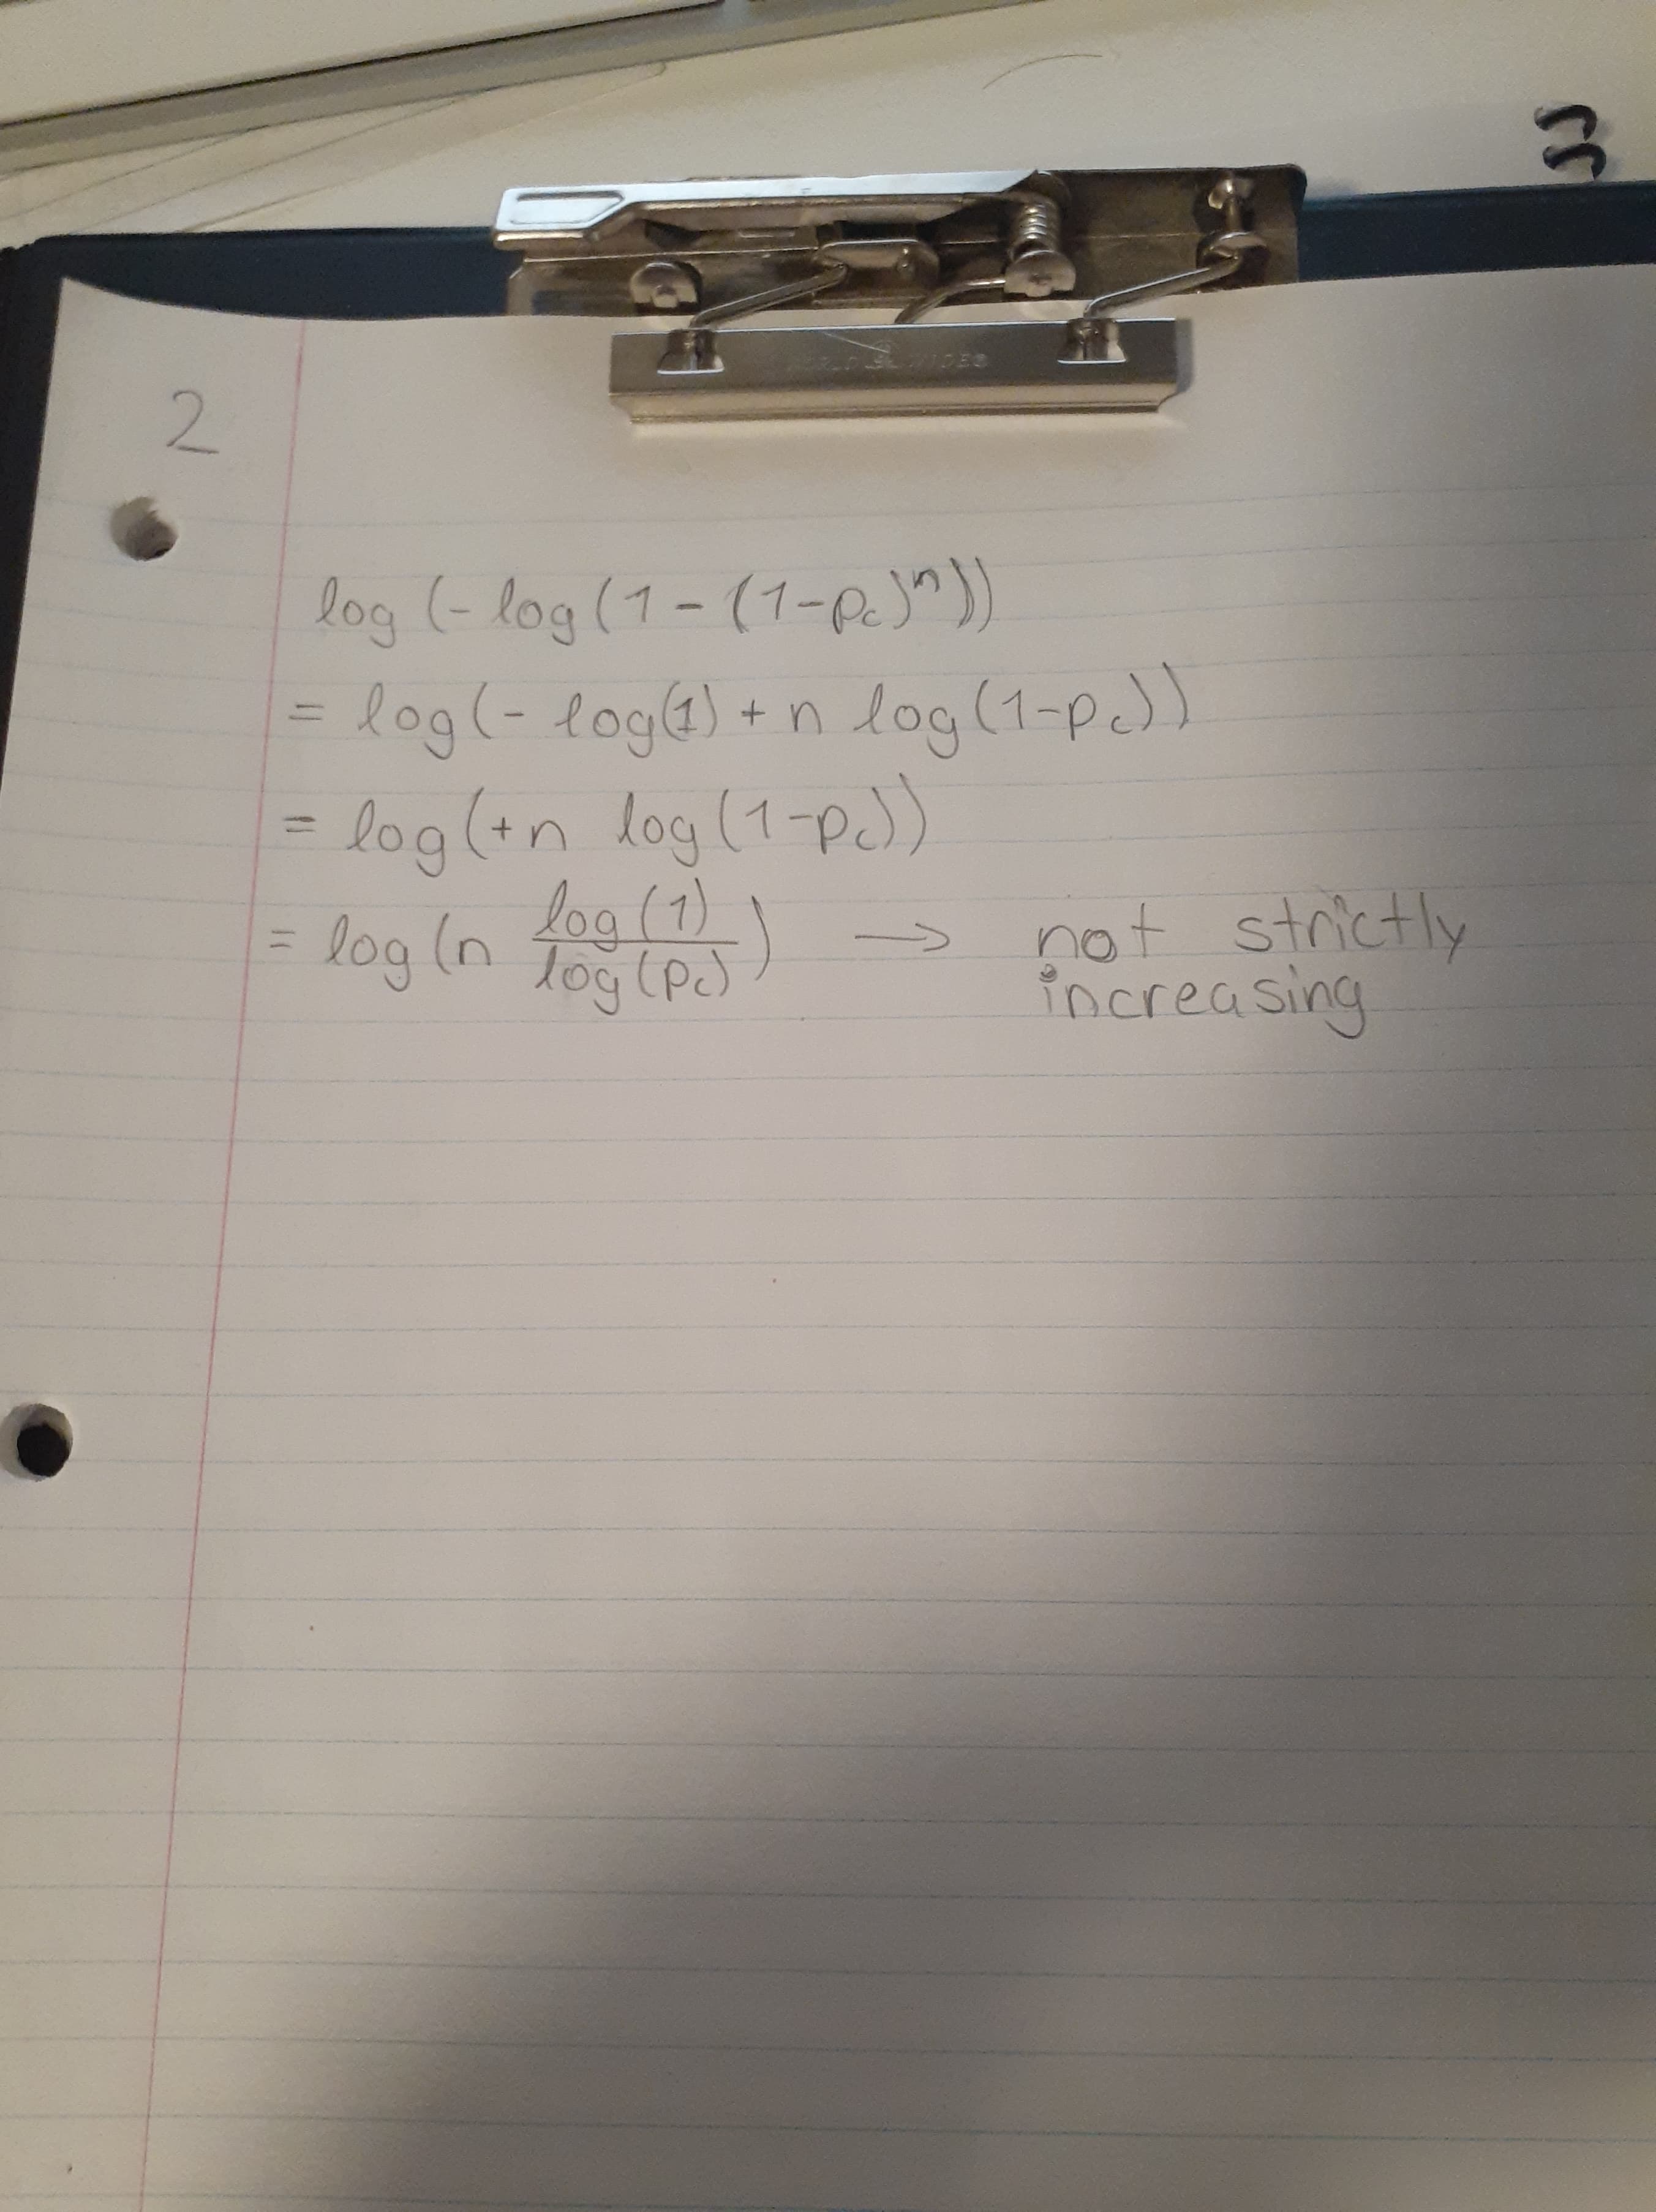 3
2
log (- log (1 - (1-p_c)^n))
= log(- log(1) + n log(1-p_c))
= log(+n log(1-p_c))
= log(n log(1)/log(p_c)) → not strictly
increasing